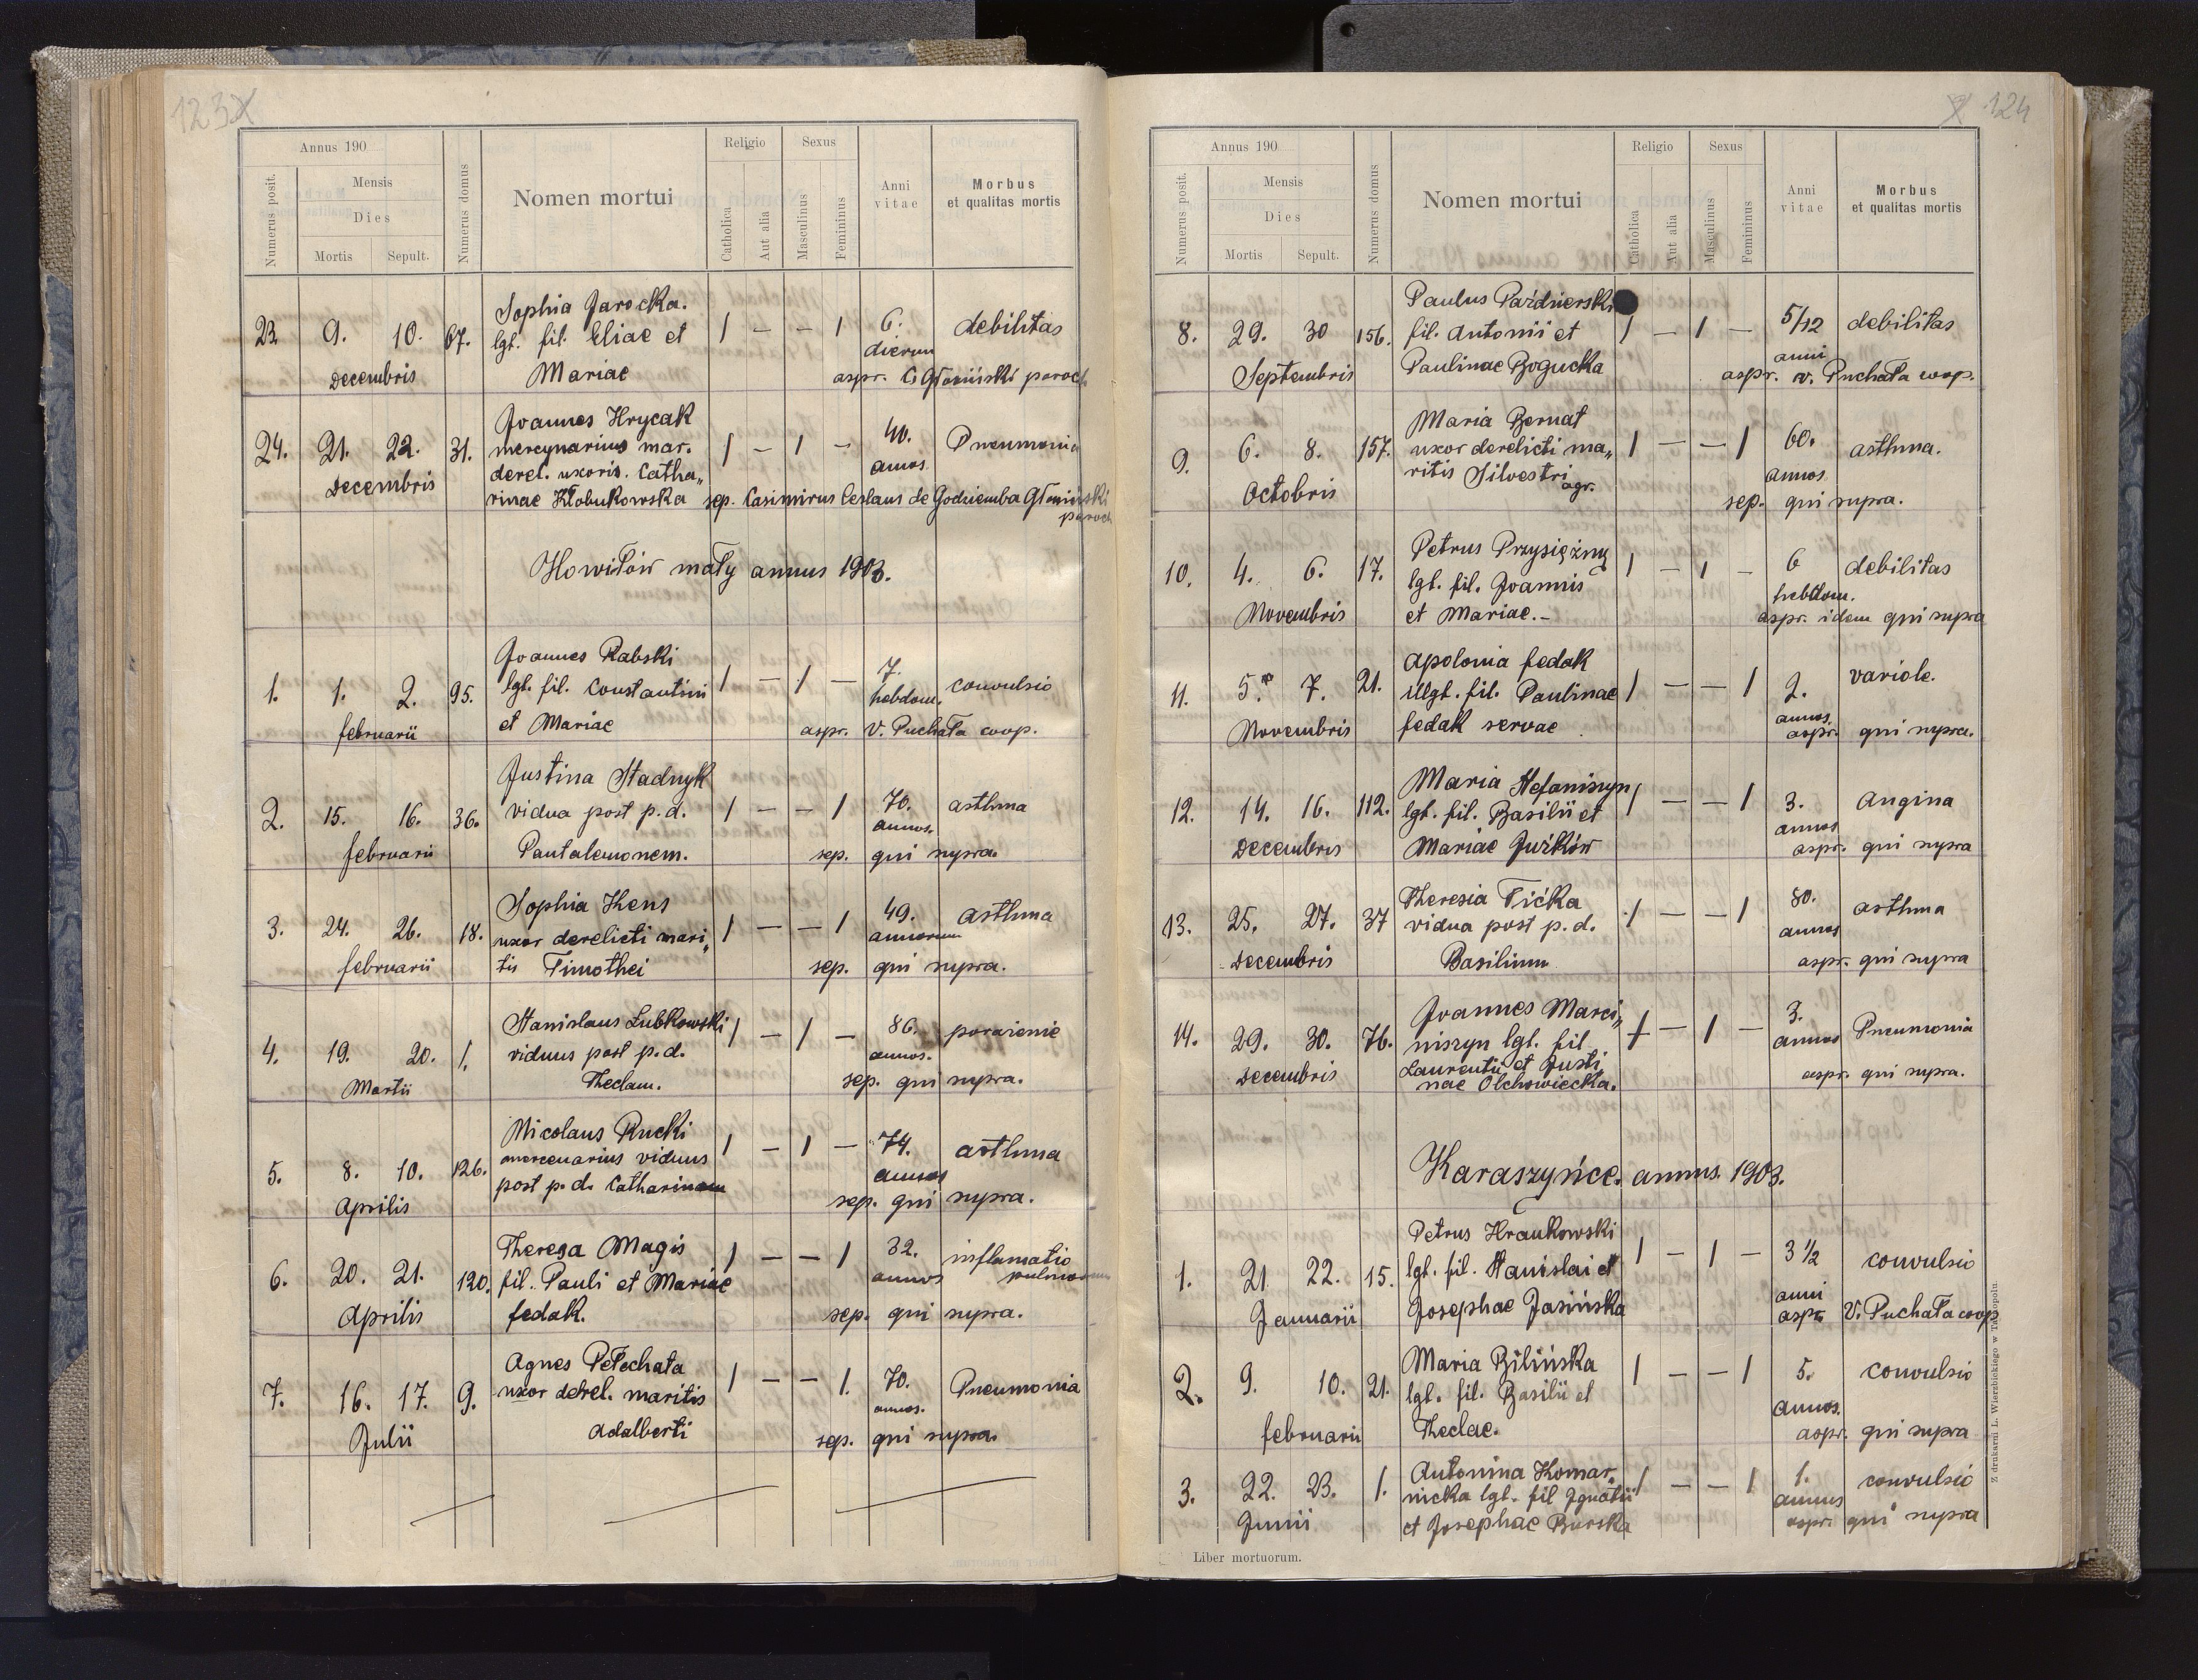 123
Annus 190
Numerus posit.
Mensis
Dies
Mortis Sepult.
Numerus domus
Nomen mortui
Religio
Catholica
Aut alia
Sexus
Masculinus
Femininus
Anni
vitae
Morbus
et qualitas mortis
23. 9. 10. 67. Sophia Jarocka. 1 — — 1 6. debilitas
lgt. fil. Eliae et dierum
Decembris Mariae aspr. C Głoziński paroch
24. 21. 22. 31. Joannes Hrycak 1 — 1 — 40. Pneumonia
mercynarius mar. annos.
derel. uxoris. Catha„
Decembris
rinae Kłobukowska sep. Casimirus Ceslaus de Godziemba
paroch
Howiłów mały annus 1903.
1. 1. 2. 95. Joannes Rabski 1 — 1 — 7. convulsio
lgt. fil. Constantini hebdom.
februarii et Mariae aspr. V. Puchała coop.
2. 15. 16. 36. Justina Stadnyk 1 — — 1 70. asthma
vidua post p. d. annos.
februarii Pantalemonem. sep. qui supra.
3. 24. 26. 18. Sophia Kens 1 — — 1 49. asthma
uxor derelicti mari„ annorum
februarii tis Timothei sep. qui supra.
4. 19. 20. 1. Stanislaus Lubkowski 1 — 1 — 86. porażenie
viduus post p. d. annos.
Martii Theclam. sep. qui supra.
5. 8. 10. 126. Nicolaus Rucki 1 — 1 — 74. asthma
mercenarius viduus annos
post p. d. Catharinam
Aprilis sep. qui supra.
6. 20. 21. 120. Theresa Magis 1 — — 1 32. inflamatio
fil. Pauli et Mariae annos pulmonum
Aprilis fedak. sep. qui supra.
7. 16. 17. 9. Agnes Pełechata 1 — — 1. 70. Pneumonia
uxor derel. maritis annos.
Julii Adalberti sep. qui supra.
124
Annus 190
Numerus posit.
Mensis
Dies
Mortis Sepult.
Numerus domus
Nomen mortui
Religio
Catholica
Aut alia
Sexus
Masculinus
Femininus
Anni
vitae
Morbus
et qualitas mortis
8. 29. 30 156. Paulus Paździerski 1 — 1 — 5/12 debilitas
fil. Antonii et anni
Septembris Paulinae Bogucka aspr. v. Puchała coop.
9. 6. 8. 157. Maria Bernat 1 — — 1 60. asthma.
uxor derelicti ma„ annos
ritis Silvestri agr.
Octobris sep. qui supra.
10. 4. 6. 17. Petrus Przysiężny 1 — 1 — 6 debilitas
lgt. fil. Joannis hebdom.
Novembris et Mariae.- aspr. idem qui supra
11. 5. 7. 21. Apolonia fedak 1 — — 1 2. variole.
illgt. fil. Paulinae annos.
Novembris fedak servae aspr. qui supra.
12. 14. 16. 112. Maria Stefaniszyn 1 — — 1 3. Angina
lgt. fil. Basilii et annos
Decembris Mariae Juźków aspr. qui supra
13. 25. 27. 37 Theresia Tićka 1 — — 1 80. asthma
vidua post p. d. annos
Decembris Basilium aspr. qui supra
14. 29. 30. 76. Joannes Marci„ 1 — 1 — 3. Pneumonia
niszyn lgt. fil annos
Laurentii et Justi
Decembris nae Olchowiecka. aspr. qui supra.
Karaszyńce. annus. 1903.
1. 21 22. 15. Petrus Hraukowski 1 — 1 — 3 1/2 convulsio
lgt. fil. Stanislai et anni
Januarii Josephae Jasińska aspr. V. Puchała coop
2. 9. 10. 21. Maria Bilińska 1 — — 1 5. convulsio
lgt. fil. Basilii et annos.
februarii Theclae. aspr. qui supra
3. 22. 23. 1. Antonina Komar„ 1 — — 1 1. convulsio
nicka lgt. fil Ignatii annus
Junii et Josephae Burska aspr. qui supra
Liber mortuorum.
Z drukarni L. Wierzbickiego w Tarnopolu.